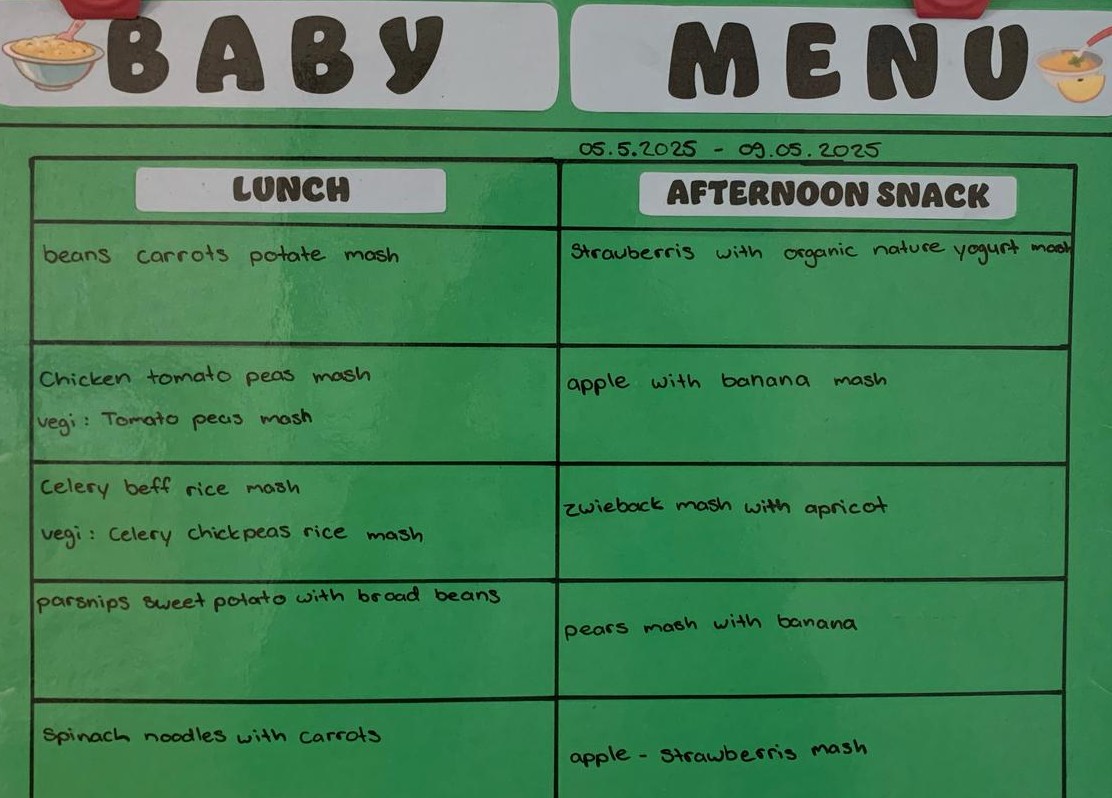 BABY MENU
05.5.2025 - 09.05.2025
LUNCH
AFTERNOON SNACK
beans carrots potate mash
Strauberris with organic nature yogurt mash
Chicken tomato peas mash
vegi: Tomato peas mash
apple with banana mash
Celery beff rice mash
vegi: Celery chickpeas rice mash
zwieback mash with apricot
parsnips sweet potato with broad beans
pears mash with banana
Spinach noodles with carrots
apple - Strawberris mash